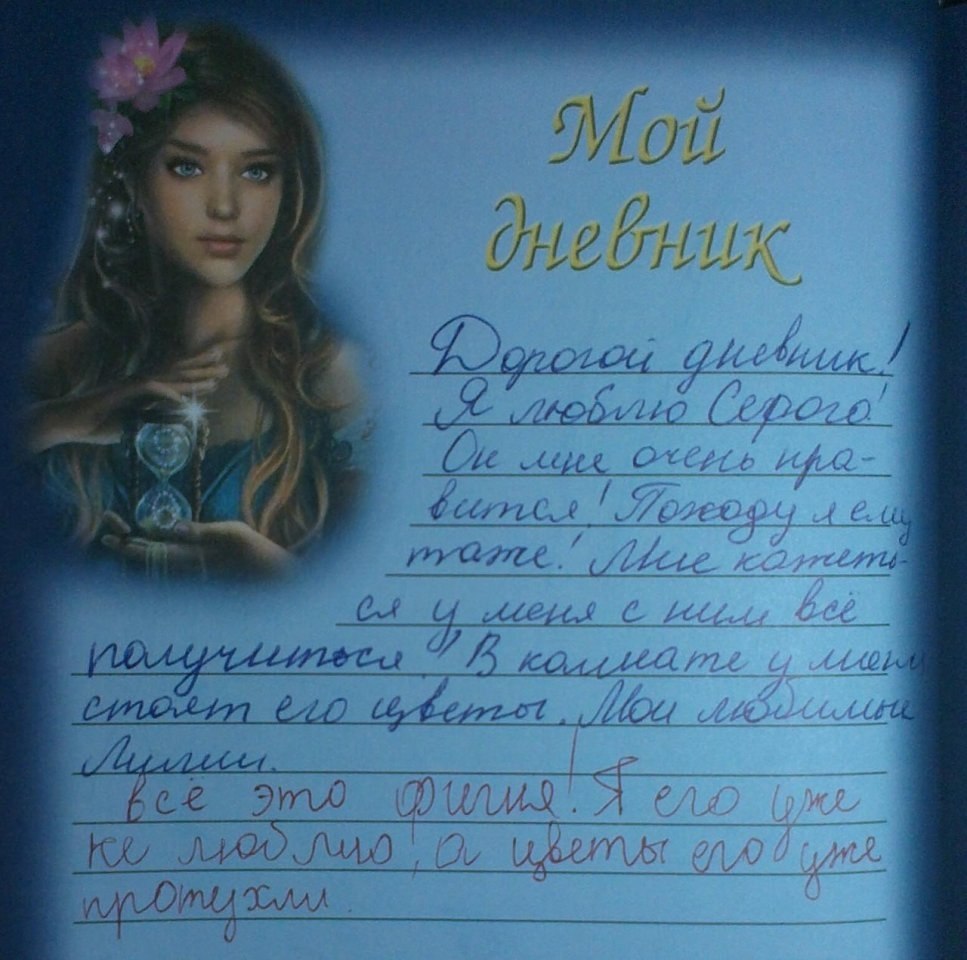 Мой
дневник
Дорогой дневник!
Я люблю Серого!
Он мне очень нра-
вится! Походу я ему
таже! Мне кажеть-
ся у меня с ним всё
получиться! В комнате у меня
стоят его цветы. Мои любимые
Лилии.
Всё это фигня! Я его уже
не люблю, а цветы его уже
протухли.